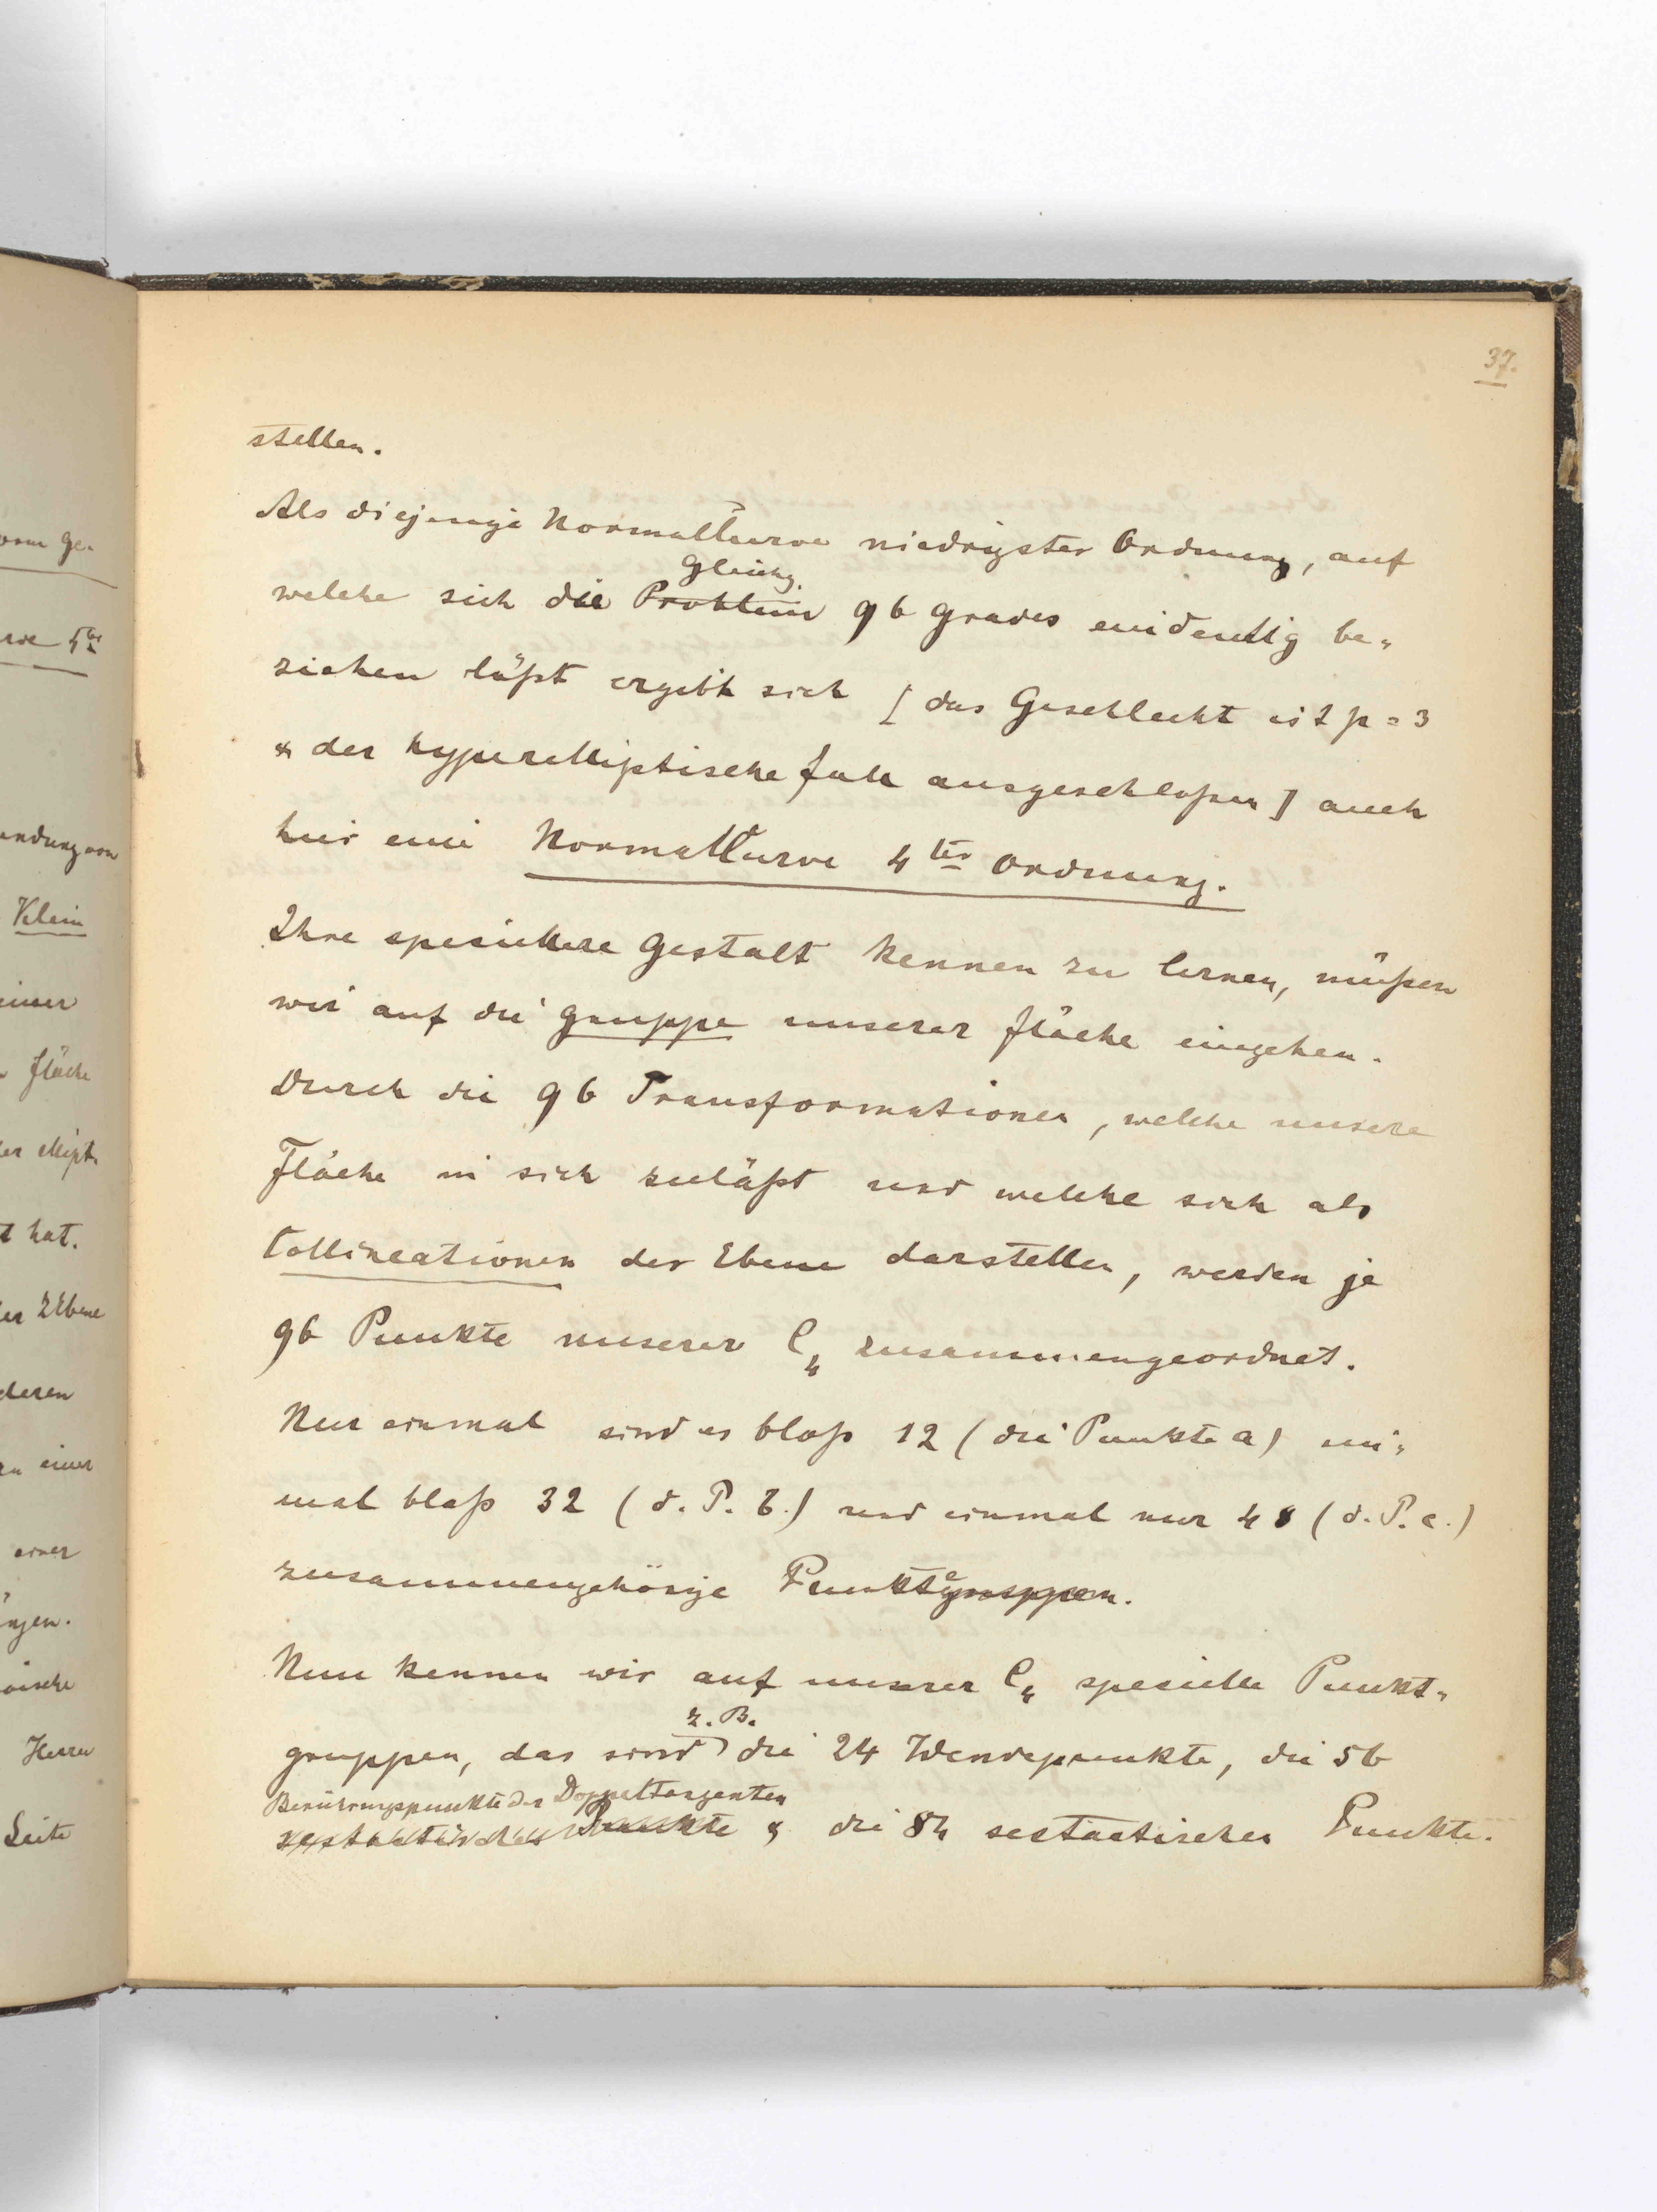 37.
stellen.
Als diejenige Normalkurve niedrigster Ordnung, auf
Gleichg.
welche sich die Problem 96 Grades eindeutig be-
ziehen läßt ergibt sich [das Geschlecht ist p = 3
& der hyperelliptische Fall ausgeschloßen] auch
hier eine Normalkurve 4ter Ordnung.
Ihre spezielle Gestalt kennen zu lernen, müßen
wir auf die Gruppe unserer Fläche eingehen.
Durch die 96 Transformationen, welche unsere
Fläche in sich zuläßt und welche sich als
Collineationen der Ebene darstellen, werden je
96 Punkte unserer C4 zusammengeordnet.
Nur einmal sind es bloß 12 (die Punkte a) ein-
mal bloß 32 (d. P. b.) und einmal nur 48 (d. P. c.)
zusammengehörige Punktgruppen.
Nun kennen wir auf unserer C4 spezielle Punkt-
z. B.
gruppen, das sind die 24 Wendepunkte, die 56
Berührungspunkte der Doppeltangenten
sestactischen Punkte & die 84 sestactischen Punkte.
orm Ge-
rve 4ter
ndung von
Klein
einer
Fläche
er ellipt.
t hat.
er Ebene
deren
zu einer
einer
ngen.
Herrn
Seite